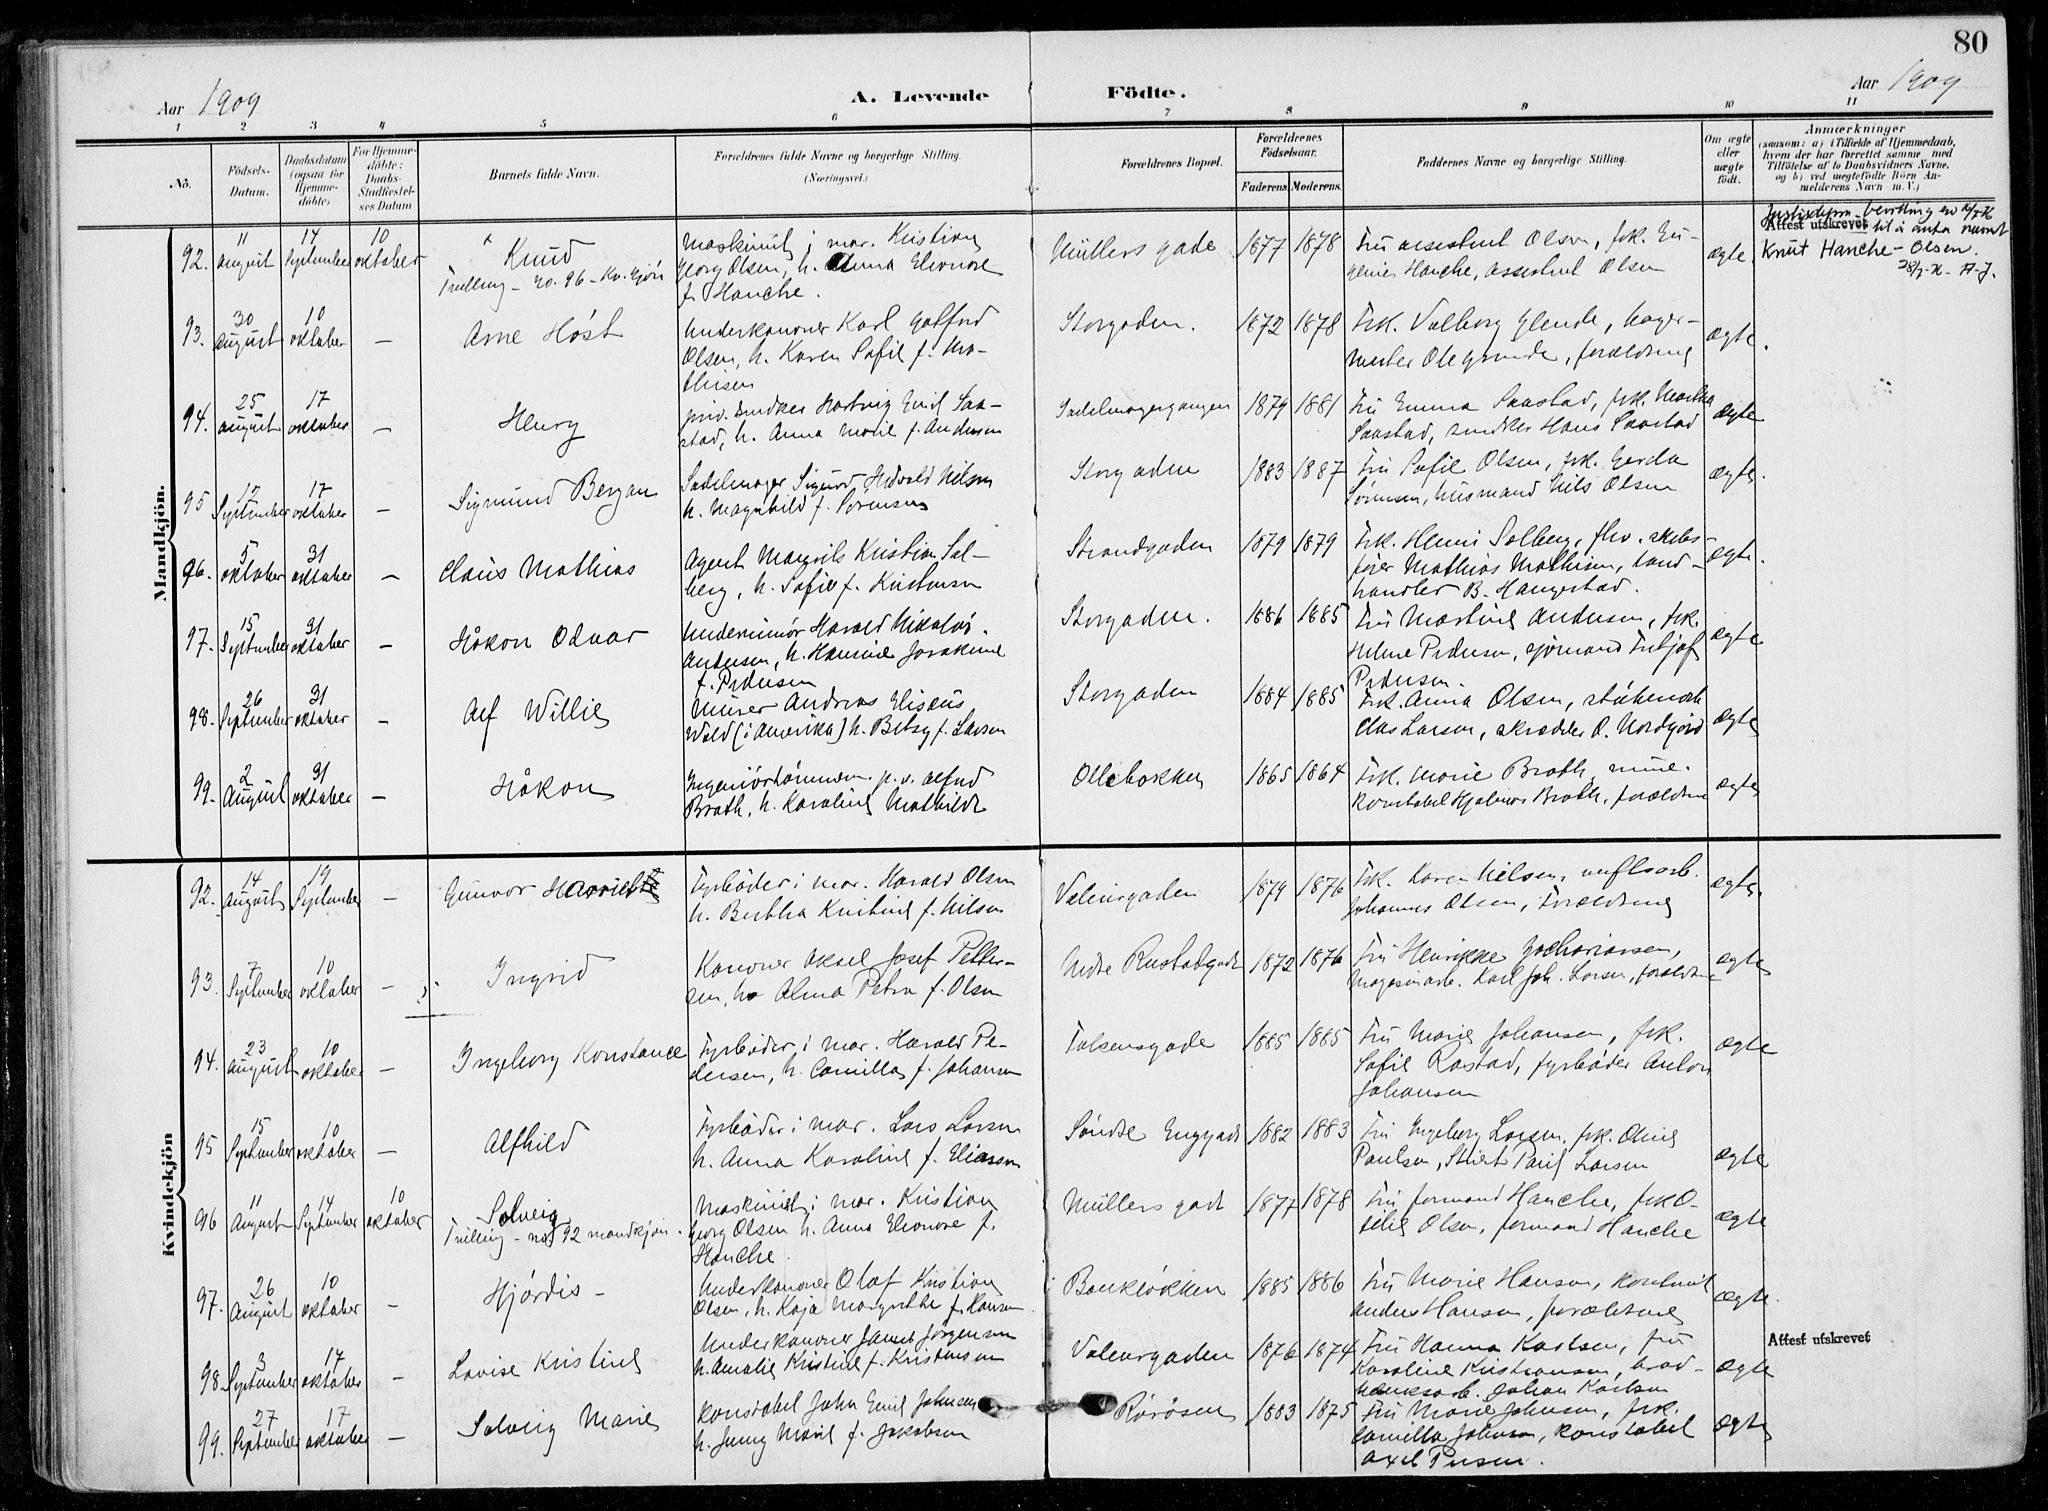 80
Aar 1909
A. Levende Födte.
Aar 1909
1 2 3 4 5 6 7 8 9 10 11
No.
Födsels-Datum.
Daabsdatum (ogsaa for Hjemme-döbte)
For Hjemme-döbte: Daabs-Stadfæstel-ses Datum
Barnets fulde Navn.
Forældrenes fulde Navne og borgerlige Stilling.
(Næringsvei.)
Forældrenes Bopæl.
Forældrenes Födselsaar.
Faderens. Moderens.
Faddernes Navne og borgerlige Stilling.
Om ægte eller uægte födt.
Anmærkninger
(saasom: a) i Tilfælde af Hjemmedaab,
hvem der har forrettet samme med
Tilföielse af to Daabsvidners Navne,
og b) ved uegtefödte Börn An-
melderens Navn m. V.)
Mandkjön.
92. 11 August 14 September 10 oktober Knud
Trilling - no. 96 - Kv. Kjön
Maskinist i mar. Kristian
Georg Olsen, h. Anna Eleonore
f. Hanche.
Müllers gade 1877 1878
Fru assistent Olsen, frk. Eu-
genie Hanche, assistent Olsen
ægte.
Attest utskrevet til å anta navnet
Knut Hanche-Olsen
93. 30 August 10 oktober - Arne Höst
Underkanoner Karl Gotfred
Olsen, h. Karen Sofie f. Ma-
thisen
Storgaden. 1872 1878
Frk. Valborg Glende, bager-
mester Ole Grinde, forældrene
ægte.
94. 25 august 17 oktober - Henry
priv. snedker Hartvig Emil Saa-
stad, h. Anna Marie f. Andersen
Sadelmagergangen 1879 1881
Fru Emma Saastad, frk. Martha
Saastad, snedker Hans Saastad
ægte
95 12 September 17 oktober - Sigmund Bergan
Sadelmager Sigurd Hidvald Nilsen
h. Magnhild f. Sörensen
Storgaden 1883 1887
Fru Sofie Olsen, frk. Gerda
Sörensen, husmand Nils Olsen
ægte.
96. 5 oktober 31 oktober - Claus Mathias
Agent Mauritz Kristian Sol-
berg, h. Sofie f. Kristensen
Strandgaden 1879 1879
Frk. Henni Solberg, fhv. skibs-
förer Mathias Mathisen, land-
handler B. Haugestad.
ægte.
97. 15 September 31 oktober - Håkon Odvar
Underminör Harald Nikolai
Andersen, h. Hansine Jorakime
f. Pedersen
Storgaden. 1886 1885
Fru Martine Andersen, frk.
Helene Pedersen, sjömand Fritjof
Pedersen.
ægte
98. 26 September 31 oktober - Alf Willie
Murer Andreas Eliseus
Wold (i Amerika) h. Betsy f. Larsen
Storgaden 1884 1885
Frk. Anna Olsen, stöbemester
Clas Larsen, skrædder O. Nordgård
ægte
99. 2 August 31 oktober - Håkon
Ingeniörtömmerm. p. v. Alfred
Brath, h. Karoline Mathilde
Ollebakken 1865 1864
Frk. Marie Brath, mine-
konstabel Hjalmar Brath, forældrene
ægte
Kvindekjön
92. 14 August 19 September - Gunvor Harriet
Fyrböder i mar. Harald Olsen
h. Bertha Kristine f. Nilsen
Valeurgaden 1879 1876
Frk. Karen Nilsen, verftsarb.
Johannes Olsen, Forældrene
ægte.
93. 7 September 10 oktober - Ingrid
Kanoner Aksel Josef Petter-
sen, h. Alma Petra f. Olsen
Nedre Rustadgade 1872 1876
Fru Henrikke Zachariassen,
Magasinarb. Karl Joh. Larsen, forældrene
ægte
94. 23 August 10 oktober - Ingeborg Konstance
Fyrböder i mar. Harald Pe-
dersen, h. Camilla f. Johansen
Falsensgade 1885 1885
Fru Marie Johansen, frk.
Sofie Rastad, fyrböder Anton
Johansen
ægte
95 15 September 10 oktober - Alfhild
Fyrböder i mar. Lars Larsen
h. Anna Karoline f. Eliassen
Söndre Enggade 1882 1883
Fru Ingeborg Larsen, frk. Oline
Paulsen, Paul Larsen
ægte
96 11 August 14 September 10 oktober Solveig
Trilling - no 92 mandkjön.
Maskinist i mar. Kristian
Georg Olsen h. Anna Eleonore f.
Hanche
Müllers gade 1877 1878
Fru formand Hanche, frk O-
tilie Olsen, formand Hanche
ægte
97. 26 August 10 oktober - Hjördis -
Underkanoner Olaf Kristian
Olsen, h. Kaja Margrethe f. Hansen
Bankløkken 1885 1886
Fru Marie Hansen,
Anders Hansen, forældrene
ægte.
98. 3 September 17 oktober - Lovise Kristine
Underkanoner James Jørgensen
h. Amalie Kristine f. Kristensen
Valeurgaden 1876 1874
Fru Hanna Karlsen, fru
Karoline Kristiansen,
Johan Karlsen
ægte
Attest utskrevet
99. 27 September 17 oktober - Solveig Marie
Konstabel John Emil Johnsen
h. Jenny Marie f. Jakobsen
Rörösen 1883 1875
Fru Marie Johnsen, frk.
Camilla Johnsen, konstabel
Axel
ægte